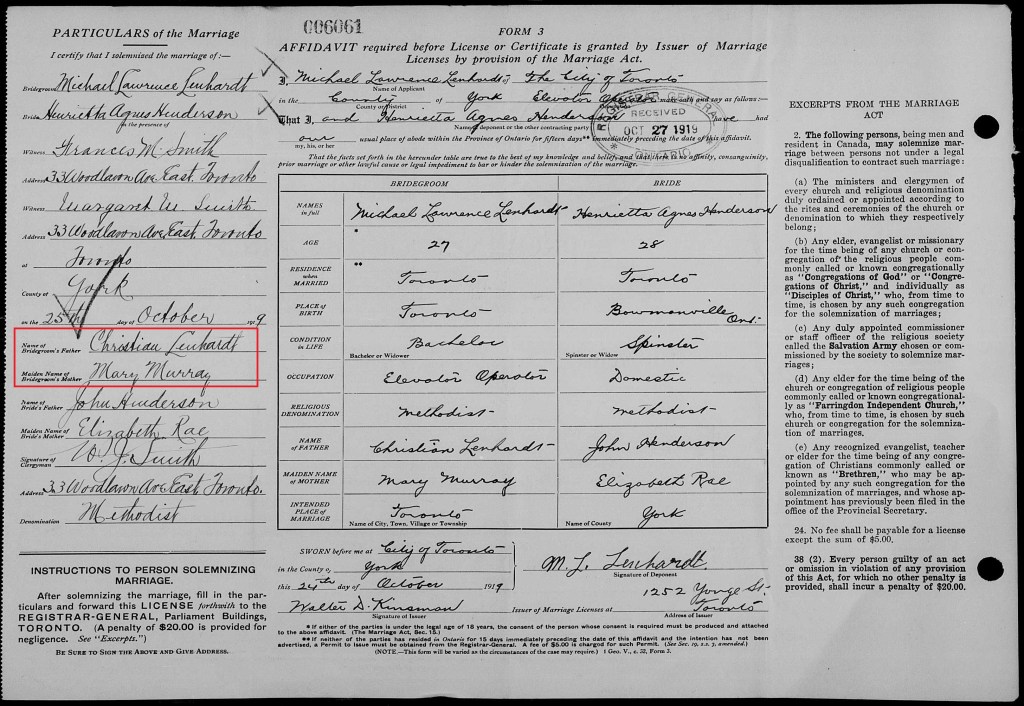 PARTICULARS of the Marriage
I certify that I solemnized the marriage of:—
Bridegroom Michael Lawrence Lenhardt
Bride Henrietta Agnes Henderson
in the presence of
Witness Frances M. Smith
Address 33 Woodlawn Ave East, Toronto
Witness Margaret M. Smith
Address 33 Woodlawn Ave East, Toronto
at Toronto
County of York
on the 25th day of October 1919
Name of Bridegroom's Father Christian Lenhardt
Maiden Name of Bridegroom's Mother Mary Murray
Name of Bride's Father John Henderson
Maiden Name of Bride's Mother Elizabeth Rae
Signature of Clergyman W. J. Smith
Address 33 Woodlawn Ave East, Toronto.
Denomination Methodist
INSTRUCTIONS TO PERSON SOLEMNIZING
MARRIAGE.
After solemnizing the marriage, fill in the par-
ticulars and forward this LICENSE forthwith to the
REGISTRAR-GENERAL, Parliament Buildings,
TORONTO. (A penalty of $20.00 is provided for
negligence. See "Excerpts.")
BE SURE TO SIGN THE ABOVE AND GIVE ADDRESS.
006061
FORM 3
AFFIDAVIT required before License or Certificate is granted by Issuer of Marriage
Licenses by provision of the Marriage Act.
I, Michael Lawrence Lenhardt of The City of Toronto
Name of Applicant
in the County of York Elevator Operator make oath and say as follows:—
County or District
That I, and Henrietta Agnes Henderson have had
Name of deponent or the other contracting party
our usual place of abode within the Province of Ontario for fifteen days** immediately preceding the date of this affidavit.
my, his, or her
REGISTRAR GENERAL
RECEIVED
OCT 27 1919
ONTARIO
That the facts set forth in the hereunder table are true to the best of my knowledge and belief, and that there is no affinity, consanguinity,
prior marriage or other lawful cause or legal impediment to bar or hinder the solemnization of the marriage.
BRIDEGROOM BRIDE
NAMES in full Michael Lawrence Lenhardt Henrietta Agnes Henderson
AGE * 27 28
RESIDENCE when MARRIED ** Toronto Toronto
PLACE OF BIRTH Toronto Bowmanville Ont.
CONDITION IN LIFE Bachelor Spinster
Bachelor or Widower Spinster or Widow
OCCUPATION Elevator Operator Domestic
RELIGIOUS DENOMINATION Methodist Methodist
NAME OF FATHER Christian Lenhardt John Henderson
MAIDEN NAME OF MOTHER Mary Murray Elizabeth Rae
INTENDED PLACE OF MARRIAGE Toronto York
Name of City, Town, Village or Township Name of County
SWORN before me at City of Toronto
in the County of York
this 24th day of October 1919
M. L. Lenhardt
Signature of Deponent
Walter D. Kinsman Issuer of Marriage Licenses at 1252 Yonge St. Toronto
Signature of Issuer Address of Issuer
* If either of the parties is under the legal age of 18 years, the consent of the person whose consent is required must be produced and attached
to the above affidavit. (The Marriage Act, Sec. 15.)
** If neither of the parties has resided in Ontario for 15 days immediately preceding the date of this affidavit and the intention has not been
advertised, a Permit to Issue must be obtained from the Registrar-General. A fee of $5.00 is charged for such Permit. (See Sec. 19, s.s. 3, amended.)
(NOTE.—This form will be varied as the circumstances of the case may require.) 1 Geo. V., c. 32, Form 3.
EXCERPTS FROM THE MARRIAGE
ACT
2. The following persons, being men and
resident in Canada, may solemnize mar-
riage between persons not under a legal
disqualification to contract such marriage:
(a) The ministers and clergymen of
every church and religious denomination
duly ordained or appointed according to
the rites and ceremonies of the church or
denomination to which they respectively
belong;
(b) Any elder, evangelist or missionary
for the time being of any church or con-
gregation of the religious people com-
monly called or known congregationally
as "Congregations of God" or "Congre-
gations of Christ," and individually as
"Disciples of Christ," who, from time to
time, is chosen by any such congregation
for the solemnization of marriages;
(c) Any duly appointed commissioner
or staff officer of the religious society
called the Salvation Army chosen or com-
missioned by the society to solemnize mar-
riages;
(d) Any elder for the time being of the
church or congregation of religious people
commonly called or known congregational-
ly as "Farringdon Independent Church,"
who, from time to time, is chosen by such
church or congregation for the solemniza-
tion of marriages.
(e) Any recognized evangelist, teacher
or elder for the time being of any con-
gregation of Christians commonly called or
known as "Brethren," who may be ap-
pointed by any such congregation for the
solemnization of marriages, and whose ap-
pointment has previously been filed in the
office of the Provincial Secretary.
24. No fee shall be payable for a license
except the sum of $5.00.
38 (2). Every person guilty of an act
or omission in violation of any provision
of this Act, for which no other penalty is
provided, shall incur a penalty of $20.00.